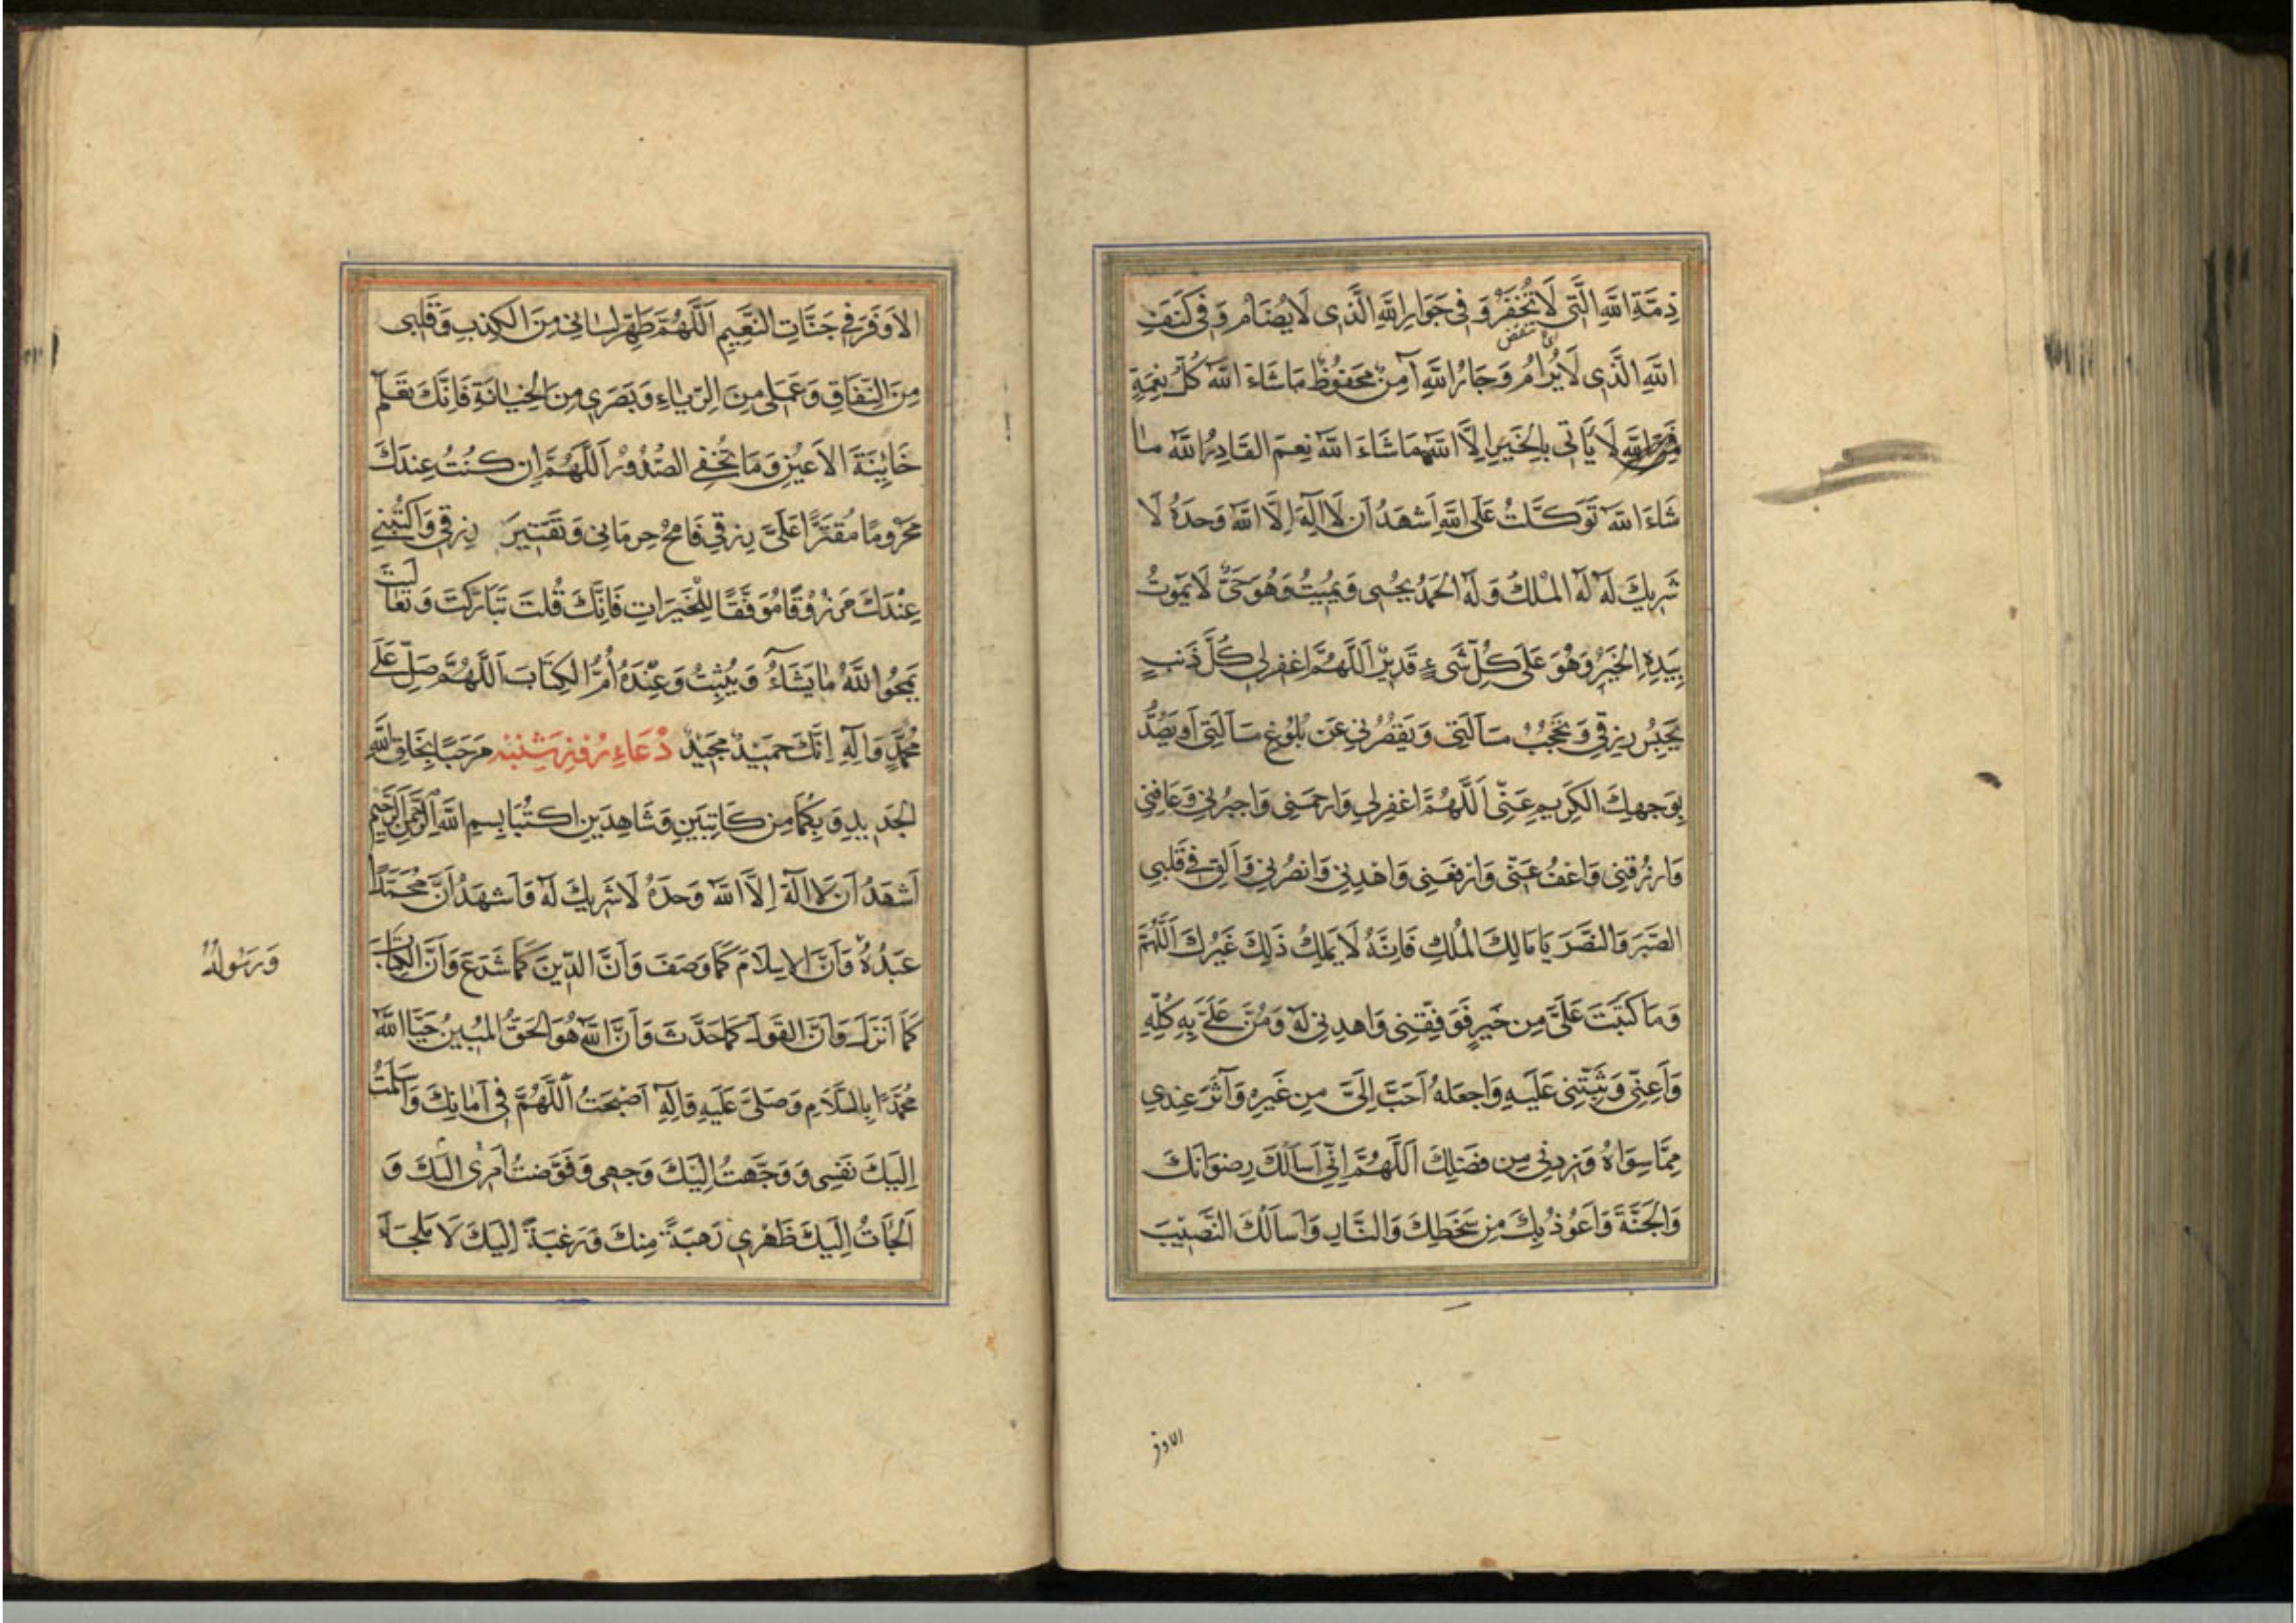 ذِمَّةِ اللّٰهِ الَّتِي لَا تُخْفَرُ وَ فِي جَوَارِ اللّٰهِ الَّذِي لَا يُضَامُ وَ فِي كَنَفِ
اى تنقض
اللّٰهِ الَّذِي لَا يُرَامُ وَ جَارُ اللّٰهِ آمِنٌ مَحفُوظٌ مَا شَاءَ اللّٰهُ كُلُّ نِعمَةٍ
فَمِنَ اللّٰهِ لَا يَأتِي بِالخَيرِ اِلَّا اللّٰهُ مَا شَاءَ اللّٰهُ نِعمَ القَادِرُ اللّٰهُ مَا
شَاءَ اللّٰهُ تَوَكَّلتُ عَلَى اللّٰهِ اَشهَدُ اَن لَا اِلٰهَ اِلَّا اللّٰهُ وَحدَهُ لَا
شَرِيكَ لَهُ لَهُ المُلكُ وَ لَهُ الحَمدُ يُحيِي وَ يُمِيتُ وَ هُوَ حَيٌّ لَا يَمُوتُ
بِيَدِهِ الخَيرُ وَ هُوَ عَلَى كُلِّ شَيءٍ قَدِيرٌ اَللّٰهُمَّ اغفِر لِي كُلَّ ذَنبٍ
يَحبِسُ رِزقِي وَ يَحجُبُ مَسأَلَتِي وَ يَقصُرُنِي عَن بُلُوغِ مَسأَلَتِي اَو يَصُدُّ
بِوَجهِكَ الكَرِيمِ عَنِّي اَللّٰهُمَّ اغفِر لِي وَ ارحَمنِي وَ اجبُرنِي وَ عَافِنِي
وَ ارزُقنِي وَ اعفُ عَنِّي وَ ارفَعنِي وَ اهدِنِي وَ انصُرنِي وَ اَلقِ فِي قَلبِي
الصَّبرَ وَ النَّصرَ يَا مَالِكَ المُلكِ فَاِنَّهُ لَا يَملِكُ ذٰلِكَ غَيرُكَ اَللّٰهُمَّ
وَ مَا كَتَبتَ عَلَيَّ مِن خَيرٍ فَوَفِّقنِي وَ اهدِنِي لَهُ وَ مُنَّ عَلَيَّ بِهِ كُلِّهِ
وَ اَعِنِّي وَ ثَبِّتنِي عَلَيهِ وَ اجعَلهُ اَحَبَّ اِلَيَّ مِن غَيرِهِ وَ آثَرَ عِندِي
مِمَّا سِوَاهُ وَ زِدنِي مِن فَضلِكَ اَللّٰهُمَّ اِنِّي اَسأَلُكَ رِضوَانَكَ
وَ الجَنَّةَ وَ اَعُوذُ بِكَ مِن سَخَطِكَ وَ النَّارِ وَ اَسأَلُكَ النَّصِيبَ
الاوفر
الاَوفَرَ فِي جَنَّاتِ النَّعِيمِ اَللّٰهُمَّ طَهِّر لِسَانِي مِنَ الكِذبِ وَ قَلبِي
مِنَ النِّفَاقِ وَ عَمَلِي مِنَ الرِّيَاءِ وَ بَصَرِي مِنَ الخِيَانَةِ فَاِنَّكَ تَعلَمُ
خَائِنَةَ الاَعيُنِ وَ مَا تُخفِي الصُّدُورُ اَللّٰهُمَّ اِن كُنتُ عِندَكَ
مَحرُومًا مُقتَرًّا عَلَيَّ رِزقِي فَامحُ حِرمَانِي وَ تَقتِيرَ رِزقِي وَ اكتُبنِي
عِندَكَ مَرزُوقًا مُوَفَّقًا لِلخَيرَاتِ فَاِنَّكَ قُلتَ تَبَارَكتَ وَ تَعَالَيتَ
يَمحُوا اللّٰهُ مَا يَشَاءُ وَ يُثبِتُ وَ عِندَهُ اُمُّ الكِتَابِ اَللّٰهُمَّ صَلِّ عَلَى
مُحَمَّدٍ وَ آلِهِ اِنَّكَ حَمِيدٌ مَجِيدٌ دُعَاءِ رُوزِ شَنبَه مَرحَبًا بِخَلقِ اللّٰهِ
الجَدِيدِ وَ بِكُمَا مِن كَاتِبَينِ وَ شَاهِدَينِ اكتُبَا بِسمِ اللّٰهِ الرَّحمٰنِ الرَّحِيمِ
اَشهَدُ اَن لَا اِلٰهَ اِلَّا اللّٰهُ وَحدَهُ لَا شَرِيكَ لَهُ وَ اَشهَدُ اَنَّ مُحَمَّدًا
عَبدُهُ وَ اَنَّ الاِسلَامَ كَمَا وَصَفَ وَ اَنَّ الدِّينَ كَمَا شَرَعَ وَ اَنَّ الكِتَابَ
وَ رَسُولُهُ
كَمَا اَنزَلَ وَ اَنَّ القَولَ كَمَا حَدَّثَ وَ اَنَّ اللّٰهَ هُوَ الحَقُّ المُبِينُ حَيَّا اللّٰهُ
مُحَمَّدًا بِالسَّلَامِ وَ صَلَّى عَلَيهِ وَ آلِهِ اَصبَحتُ اَللّٰهُمَّ فِي اَمَانِكَ وَ اَسلَمتُ
اِلَيكَ نَفسِي وَ وَجَّهتُ اِلَيكَ وَجهِي وَ فَوَّضتُ اَمرِي اِلَيكَ وَ
اَلجَأتُ اِلَيكَ ظَهرِي رَهبَةً مِنكَ وَ رَغبَةً اِلَيكَ لَا مَلجَاَ